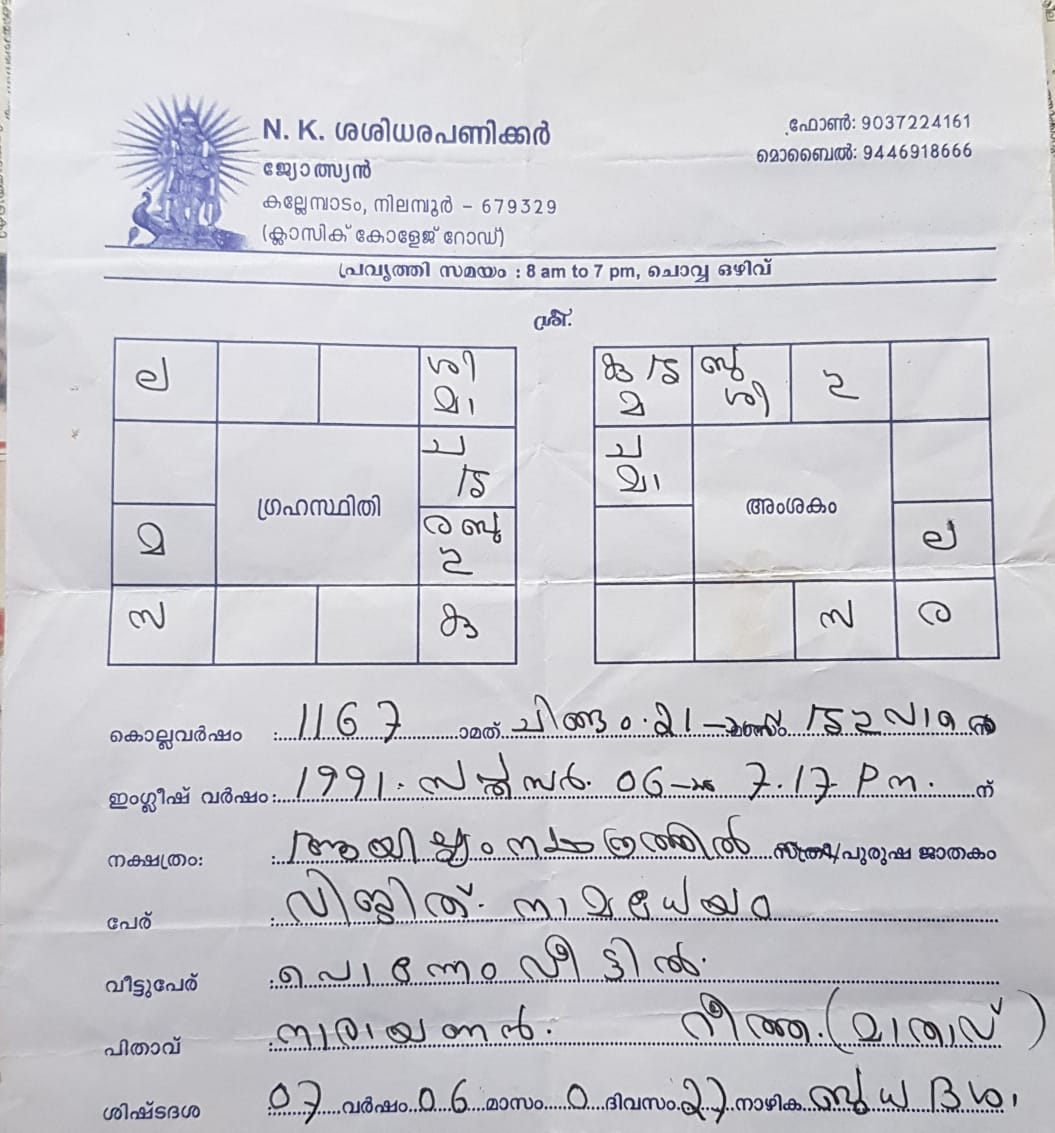 N. K. ശശിധരപണിക്കർ
ജ്യോത്സ്യൻ
കല്ലേമ്പാടം, നിലമ്പൂർ – 679329
(ക്ലാസിക് കോളേജ് റോഡ്)
ഫോൺ: 9037224161
മൊബൈൽ: 9446918666
പ്രവൃത്തി സമയം : 8 am to 7 pm, ചൊവ്വ ഒഴിവ്
ശ്രീ:
ല ശി
മാ
ച
ഗ്രഹസ്ഥിതി
മ ര ബു
സ കു
കു ബു
മ ശി
ച
മാ
അംശകം
ല
സ ര
കൊല്ലവർഷം : 1167 ാമത് ചിങ്ങം 21
ഇംഗ്ലീഷ് വർഷം: 1991 06 7.17 P m. ന്
നക്ഷത്രം: ആയില്യം നക്ഷത്രത്തിൽ പുരുഷ ജാതകം
പേര് : വിജിത് നാമധേയം
വീട്ടുപേര് : വീട്ടിൽ.
പിതാവ് : നാരായണൻ. (മാതാവ്)
ശിഷ്ടദശ : 07 വർഷം 06 മാസം 0 ദിവസം 27 നാഴിക ബുധദശ